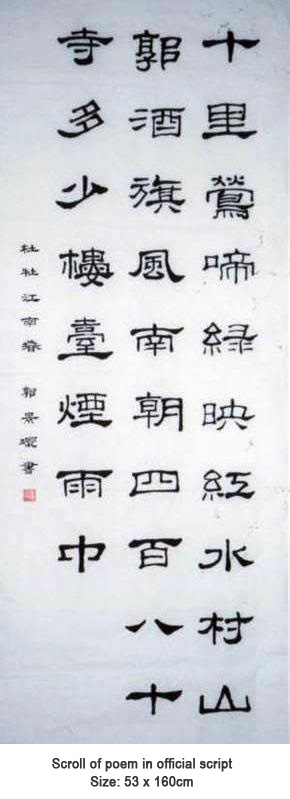 十里鶯啼緑映紅水村山
郭酒旗風南朝四百八十
寺多少樓臺煙雨中
杜牧江南春 郭景 書
Scroll of poem in official script
Size: 53 x 160cm